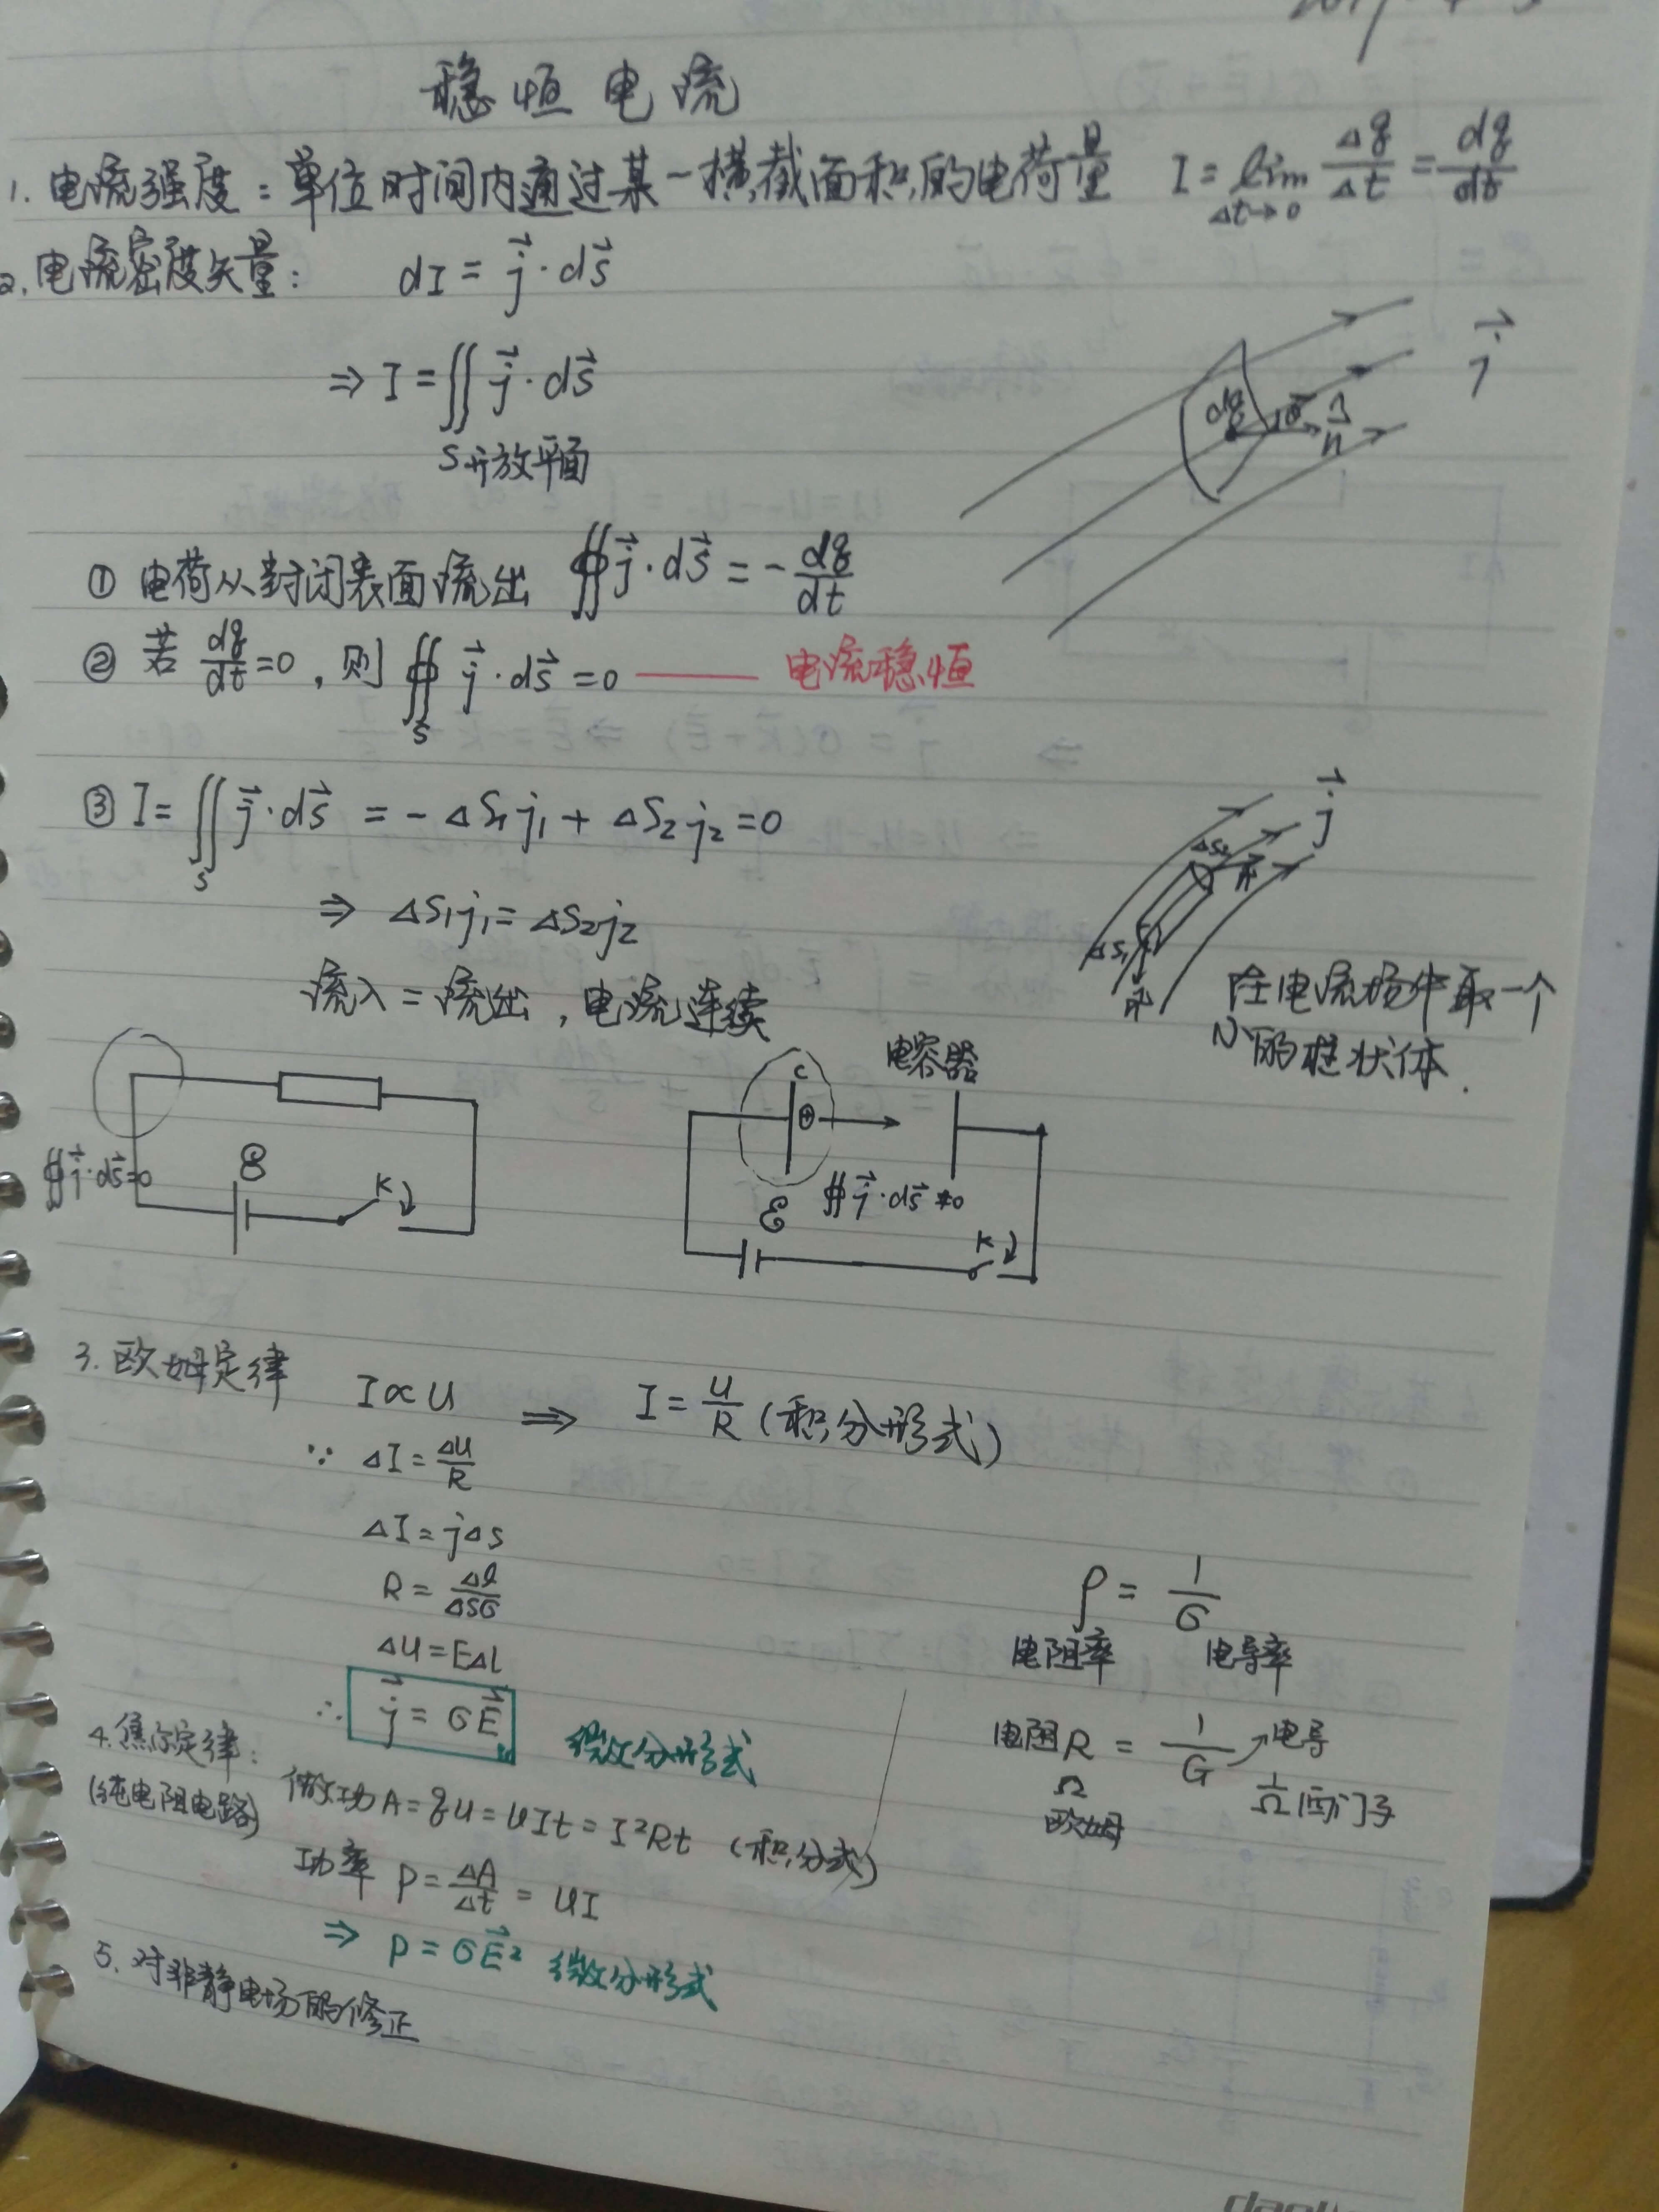 稳恒电流
1. 电流强度：单位时间内通过某一横截面积的电荷量 I = lim Δt→0 Δq/Δt = dq/dt
2. 电流密度矢量： dI = j⃗·ds⃗
⇒ I = ∬ j⃗·ds⃗
S开放平面
j⃗
dq θ n̂
① 电荷从封闭表面流出 ∯ j⃗·ds⃗ = -dq/dt
② 若 dq/dt = 0，则 ∯ j⃗·ds⃗ = 0 —— 电流稳恒
S
③ I = ∬ j⃗·ds⃗ = -ΔS₁j₁ + ΔS₂j₂ = 0
S
⇒ ΔS₁j₁ = ΔS₂j₂
流入 = 流出，电流连续
j⃗
ΔS₂ n⃗
ΔS₁ n⃗
在电流场中取一个
小的柱状体.
∯ j⃗·ds⃗ = 0
ℰ K
电容器
C ⊕
∯ j⃗·ds⃗ ≠ 0
ℰ K
3. 欧姆定律 I ∝ U ⇒ I = U/R (积分形式)
∵ ΔI = ΔU/R
ΔI = jΔs
R = Δl/ΔSσ
ΔU = EΔl
∴ j⃗ = σE⃗ 微分形式
ρ = 1/σ
电阻率 电导率
电阻R = 1/G → 电导
Ω 1/Ω 西门子
欧姆
4. 焦尔定律：
(纯电阻电路) 做功A = qU = UIt = I²Rt (积分式)
功率 P = ΔA/Δt = UI
⇒ P = σE⃗² 微分形式
5. 对非静电场的修正